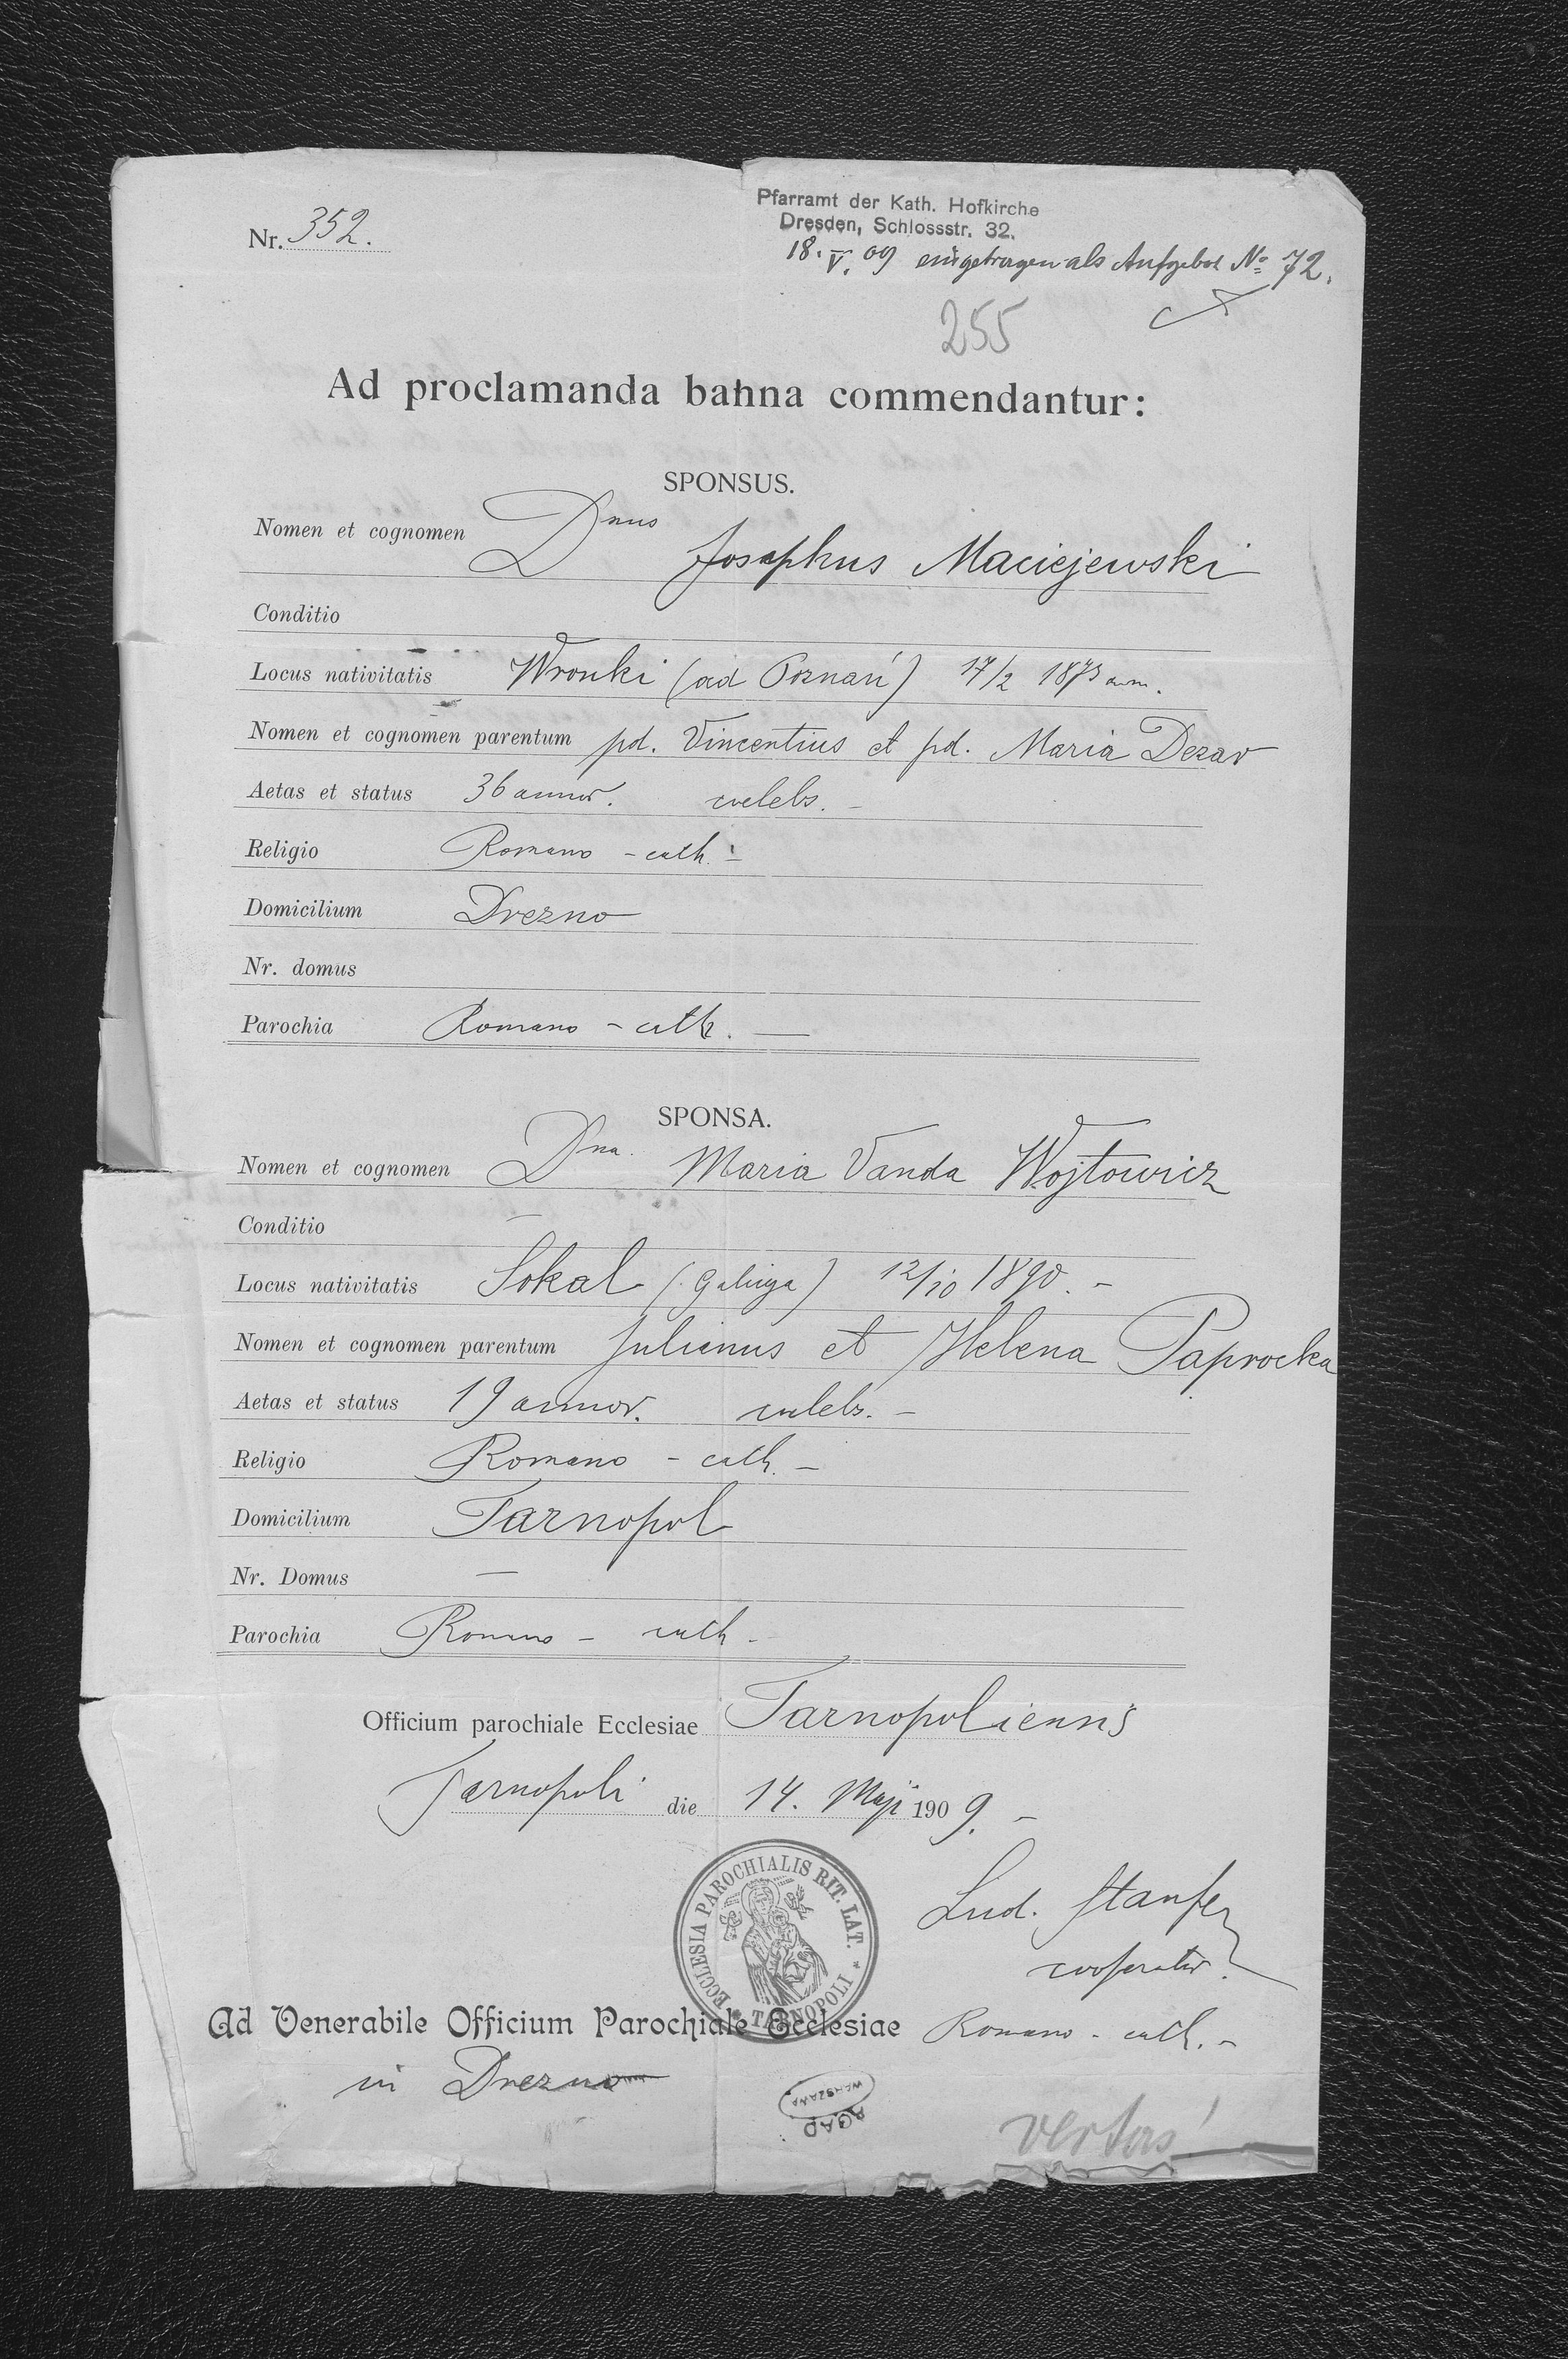 Nr. 352.
Pfarramt der Kath. Hofkirche
Dresden, Schlossstr. 32.
18. V. 09 eingetragen als Aufgebot No 72.
255
Ad proclamanda banna commendantur:
SPONSUS.
Nomen et cognomen Dnus Josephus Maciejewski
Conditio
Locus nativitatis Wronki (ad Poznań) 17/2 1873 ann.
Nomen et cognomen parentum pd. Vincentius et pd. Maria Dezar
Aetas et status 36 annor. coelebs. -
Religio Romano - cath. -
Domicilium Drezno
Nr. domus
Parochia Romano - cath. —
SPONSA.
Nomen et cognomen Dna. Maria Vanda Wojtowicz
Conditio —
Locus nativitatis Sokal (Galicya) 12/10 1890. -
Nomen et cognomen parentum Julianus et Helena Paprocka
Aetas et status 19 annor. caelebs. -
Religio Romano - cath. -
Domicilium Tarnopol
Nr. Domus —
Parochia Romano - cath -
Officium parochiale Ecclesiae Tarnopoliensis
Tarnopoli die 14. Maji 1909. -
ECCLESIA PAROCHIALIS RIT. LAT. * TARNOPOLI *
Lud.
cooperator.
Ad Venerabile Officium Parochiale Ecclesiae Romano - cath. -
in Drezno
WARSZAWA
AGAD